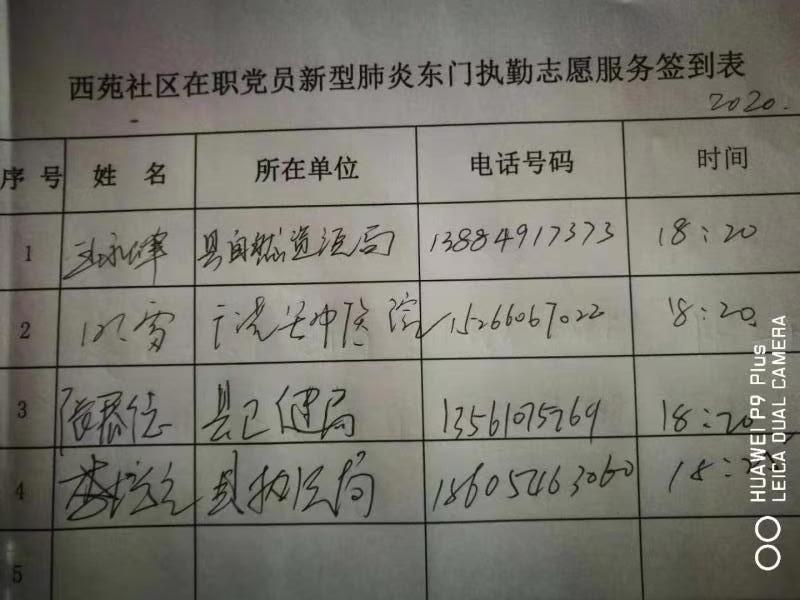 西苑社区在职党员新型肺炎东门执勤志愿服务签到表
2020.
序号 姓名 所在单位 电话号码 时间
1 县自然资源局 13884917373 18:20
2 中医院 15266067022 18:20
3 县卫健局 13561075769 18:20
4 县执法局 18605463060 18:
5
HUAWEI P9 Plus
LEICA DUAL CAMERA